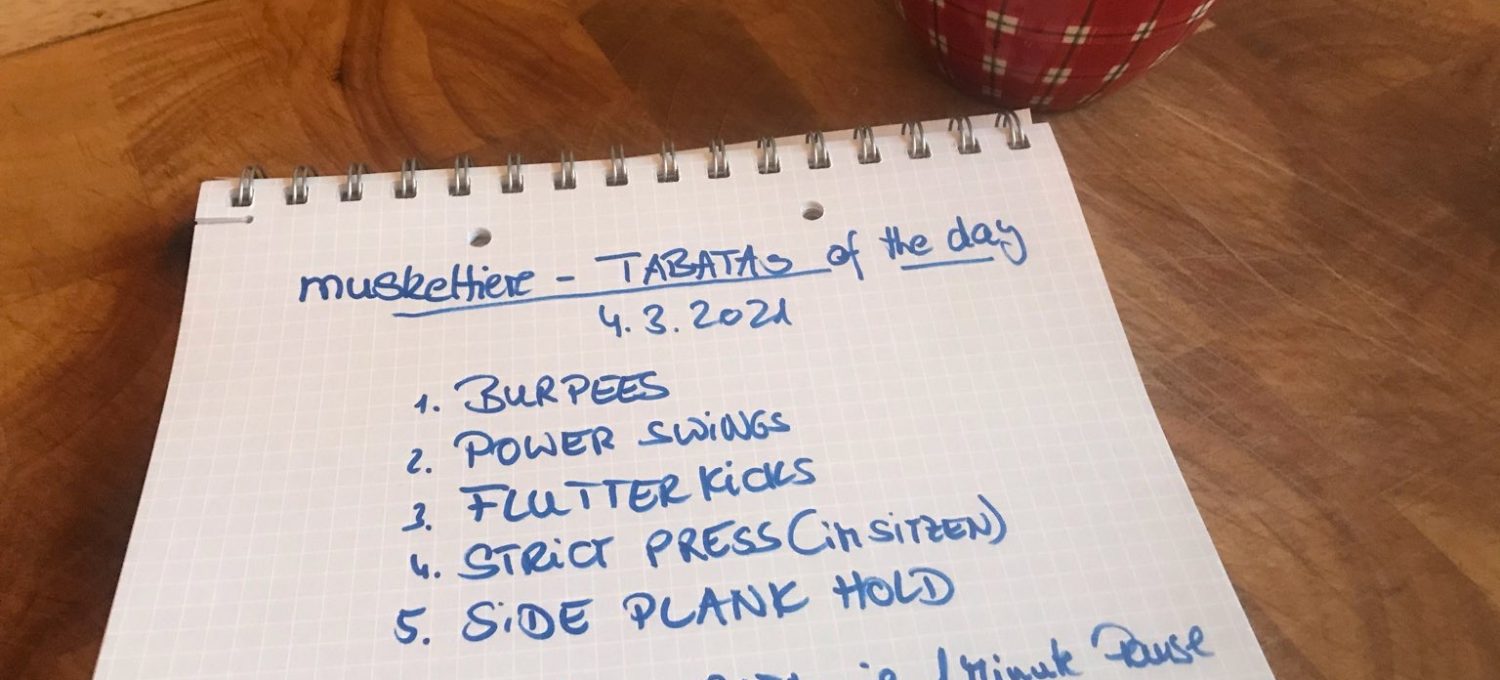 muskettiere - TABATAs of the day
4.3.2021
1. BURPEES
2. POWER SWiNGS
3. FLUTTER KiCKS
4. STRiCT PRESS (im SiTZEN)
5. SiDE PLANK HOLD
1 Minute Pause